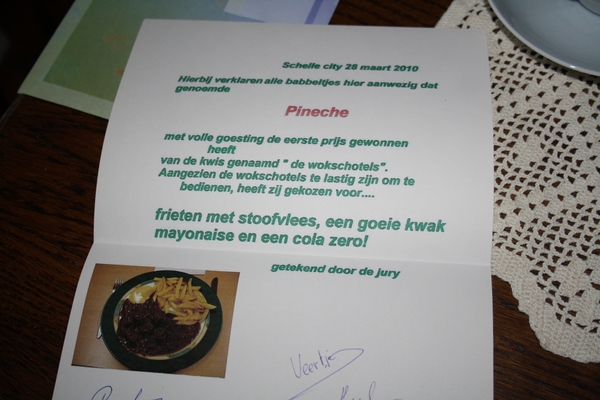 Schelle city 28 maart 2010
Hierbij verklaren alle babbeltjes hier aanwezig dat
genoemde
Pineche
met volle goesting de eerste prijs gewonnen
heeft
van de kwis genaamd " de wokschotels".
Aangezien de wokschotels te lastig zijn om te
bedienen, heeft zij gekozen voor....
frieten met stoofvlees, een goeie kwak
mayonaise en een cola zero!
getekend door de jury
Veertje